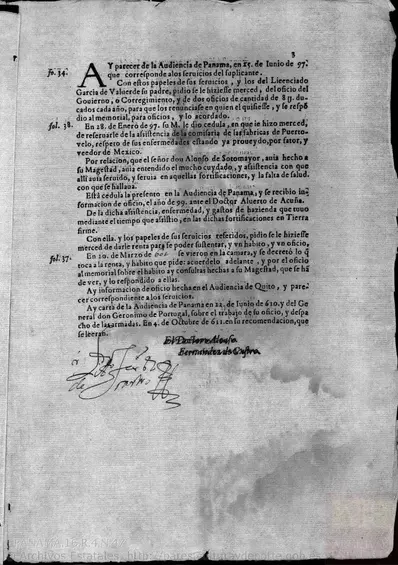 3
fo. 34.
AY parecer de la Audiencia de Panama, en 15. de Iunio de 97.
que corresponde a los seruicios del suplicante.
Con estos papeles de sus seruicios, y los del Licenciado
Garcia de Valuerde su padre, pidio se le hiziesse merced, del oficio del
Gouierno, o Corregimiento, y de dos oficios de cantidad de 8
ducados cada año, para que los renunciasse en quien el quisiesse, y se respõ
dio al memorial, para oficios, y lo acordado.
fol. 38.
En 28. de Enero de 97. su M. le dio cedula, en que le hizo merced,
de reseruarle de la assistencia de la comissaria de las fabricas de Puerto-
velo, respeto de sus enfermedades estando ya proueydo, por fator, y
veedor de Mexico.
Por relacion, que el señor don Alonso de Sotomayor, auia hecho a
su Magestad, auia entendido el mucho cuydado, y assistencia con que
alli auia seruido, y seruia en aquellas fortificaciones, y la falta de salud,
con que se hallaua.
Esta cedula la presento en la Audiencia de Panama, y se recibio in-
formacion de oficio, el año de 99. ante el Doctor Aluerto de Acuña.
De la dicha assistencia, enfermedad, y gastos de hazienda que tuuo
mediante el tiempo que assistio, en las dichas fortificaciones en Tierra
firme.
Con ella, y los papeles de sus seruicios referidos, pidio se le hiziesse
merced de darle renta para se poder sustentar, y vn habito, y vn oficio,
fol. 37.
En 20. de Março de se vieron en la camara, y se decretò lo q̃
toca a la renta, y habito que pide: acuerdelo adelante, y por el oficio
al memorial sobre el habito ay consultas hechas a su Magestad, que se hã
de ver, y lo respondido a ellas.
Ay informacion de oficio hecha en el Audiencia de Quito, y pare-
cer correspondiente a los seruicios.
Ay carta de la Audiencia de Panama en 22. de Iunio de 610. y del
General don Geronimo de Portugal, sobre el trabajo de su oficio, y despa
cho de las armadas. En 4. de Octubre de 611. en su recomendacion, que
se leeran.
El Doctor Alonso
Fernandez de Castro.